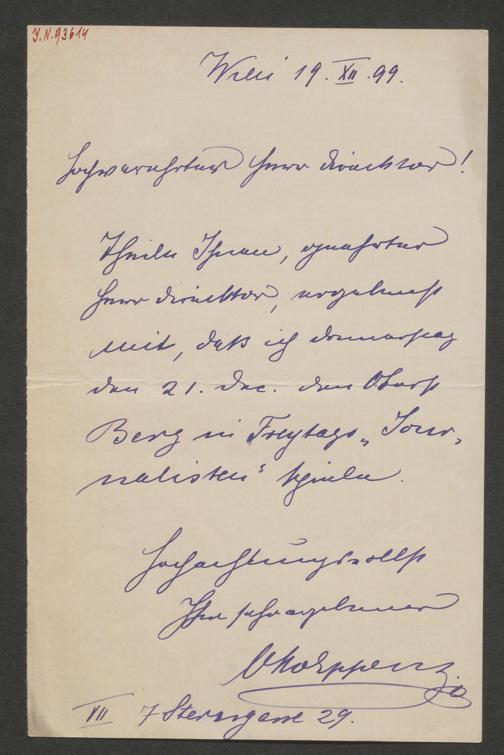 J.N. 93614
Wien 19. XII. 99.
Hochverehrter Herr Direcktor!
Theile Ihnen, geehrter
Herr Direcktor, ergebenst
mit, daß ich Donnerstag
den 21. Dec. den Oberst
Berg in Freytags „Jour-
nalisten“ spiele.
Hochachtungsvollst
Ihr sehr ergebener
VII 7 Sterngasse 29.